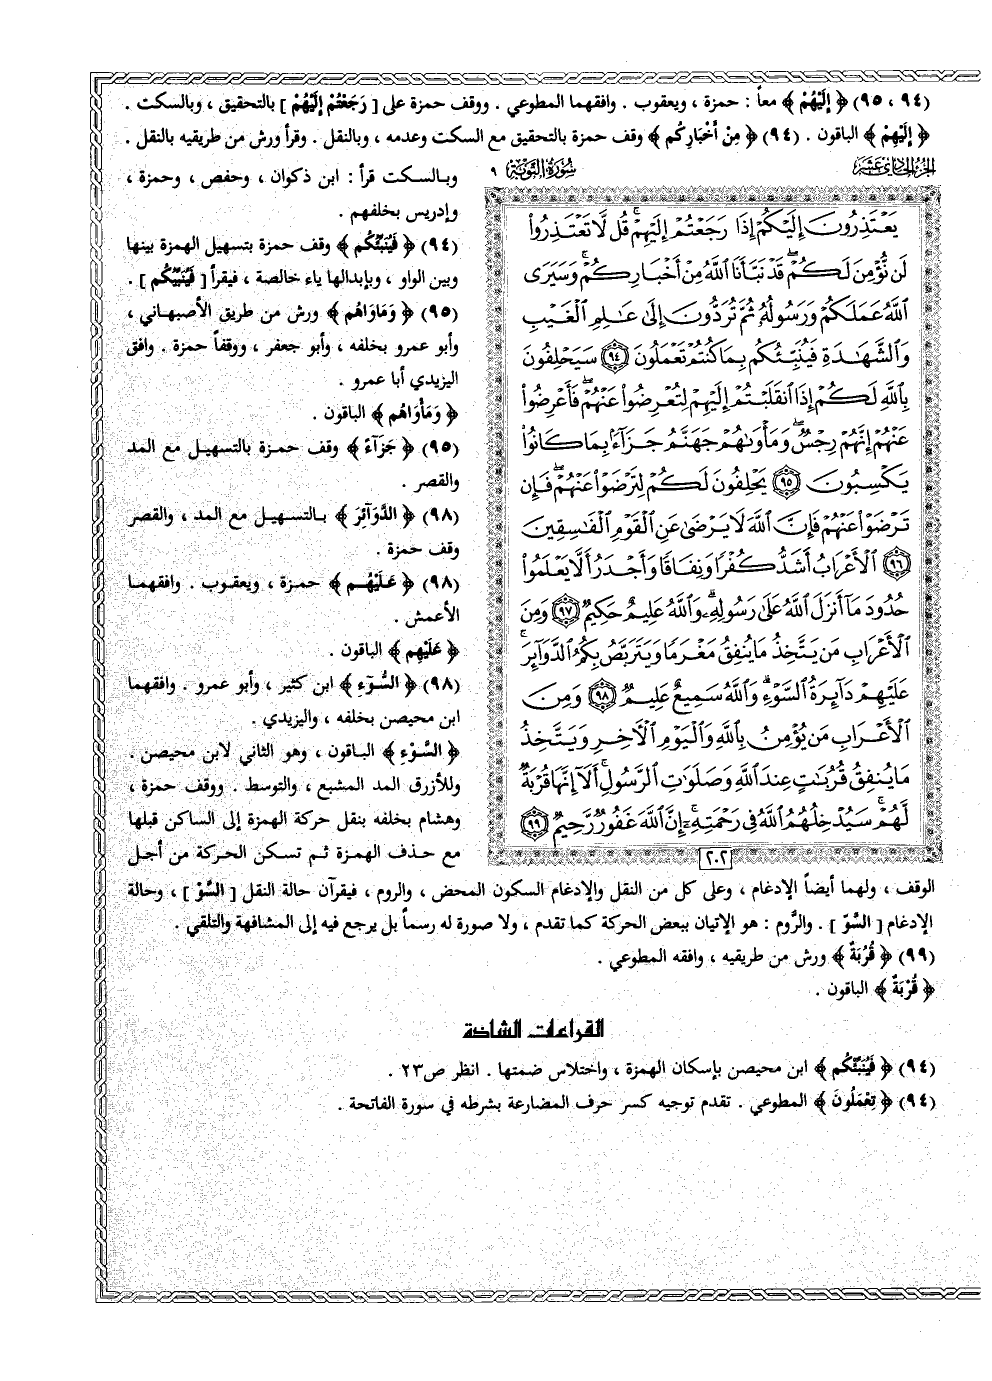 (٩٤ ، ٩٥) ﴿ إِلَيْهُمْ ﴾ معاً : حمزة ، ويعقوب . وافقهما المطوعي . ووقف حمزة على [ رَجَعْتُمْ إِلَيْهُمْ ] بالتحقيق ، وبالسكت .
﴿ إِلَيْهِمْ ﴾ الباقون . (٩٤) ﴿ مِنْ أَخْبَارِكُم ﴾ وقف حمزة بالتحقيق مع السكت وعدمه ، وبالنقل . وقرأ ورش من طريقيه بالنقل .
وبالسكت قرأ : ابن ذكوان ، وحفص ، وحمزة ،
وإدريس بخلفهم .
(٩٤) ﴿ فَيُنَبِّئُكُم ﴾ وقف حمزة بتسهيل الهمزة بينها
وبين الواو ، وبإبدالها ياء خالصة ، فيقرأ [ فَيُنَبِّيُكُم ] .
(٩٥) ﴿ وَمَاوَاهُم ﴾ ورش من طريق الأصبهاني ،
وأبو عمرو بخلفه ، وأبو جعفر ، ووقفاً حمزة . وافق
اليزيدي أبا عمرو .
﴿ وَمَأْوَاهُم ﴾ الباقون .
(٩٥) ﴿ جَزَآءً ﴾ وقف حمزة بالتسهيل مع المد
والقصر .
(٩٨) ﴿ الدَّوَآئِرَ ﴾ بالتسهيل مع المد ، والقصر
وقف حمزة .
(٩٨) ﴿ عَلَيْهُم ﴾ حمزة ، ويعقوب . وافقهما
الأعمش .
﴿ عَلَيْهِم ﴾ الباقون .
(٩٨) ﴿ السُّوٓءِ ﴾ ابن كثير ، وأبو عمرو . وافقهما
ابن محيصن بخلفه ، واليزيدي .
﴿ السَّوْءِ ﴾ الباقون ، وهو الثاني لابن محيصن .
وللأزرق المد المشبع ، والتوسط . ووقف حمزة ،
وهشام بخلفه بنقل حركة الهمزة إلى الساكن قبلها
مع حذف الهمزة ثم تسكن الحركة من أجل
الجزء الحادي عشر
سورة التوبة ٩
يَعْتَذِرُونَ إِلَيْكُمْ إِذَا رَجَعْتُمْ إِلَيْهِمْ ۚ قُل لَّا تَعْتَذِرُوا۟
لَن نُّؤْمِنَ لَكُمْ ۖ قَدْ نَبَّأَنَا ٱللَّهُ مِنْ أَخْبَارِكُمْ ۚ وَسَيَرَى
ٱللَّهُ عَمَلَكُمْ وَرَسُولُهُۥ ثُمَّ تُرَدُّونَ إِلَىٰ عَـٰلِمِ ٱلْغَيْبِ
وَٱلشَّهَـٰدَةِ فَيُنَبِّئُكُم بِمَا كُنتُمْ تَعْمَلُونَ ٩٤ سَيَحْلِفُونَ
بِٱللَّهِ لَكُمْ إِذَا ٱنقَلَبْتُمْ إِلَيْهِمْ لِتُعْرِضُوا۟ عَنْهُمْ ۖ فَأَعْرِضُوا۟
عَنْهُمْ إِنَّهُمْ رِجْسٌ ۖ وَمَأْوَىٰهُمْ جَهَنَّمُ جَزَآءًۢ بِمَا كَانُوا۟
يَكْسِبُونَ ٩٥ يَحْلِفُونَ لَكُمْ لِتَرْضَوْا۟ عَنْهُمْ ۖ فَإِن
تَرْضَوْا۟ عَنْهُمْ فَإِنَّ ٱللَّهَ لَا يَرْضَىٰ عَنِ ٱلْقَوْمِ ٱلْفَـٰسِقِينَ
٩٦ ٱلْأَعْرَابُ أَشَدُّ كُفْرًا وَنِفَاقًا وَأَجْدَرُ أَلَّا يَعْلَمُوا۟
حُدُودَ مَآ أَنزَلَ ٱللَّهُ عَلَىٰ رَسُولِهِۦ ۗ وَٱللَّهُ عَلِيمٌ حَكِيمٌ ٩٧ وَمِنَ
ٱلْأَعْرَابِ مَن يَتَّخِذُ مَا يُنفِقُ مَغْرَمًا وَيَتَرَبَّصُ بِكُمُ ٱلدَّوَآئِرَ ۚ
عَلَيْهِمْ دَآئِرَةُ ٱلسَّوْءِ ۗ وَٱللَّهُ سَمِيعٌ عَلِيمٌ ٩٨ وَمِنَ
ٱلْأَعْرَابِ مَن يُؤْمِنُ بِٱللَّهِ وَٱلْيَوْمِ ٱلْـَٔاخِرِ وَيَتَّخِذُ
مَا يُنفِقُ قُرُبَـٰتٍ عِندَ ٱللَّهِ وَصَلَوَٰتِ ٱلرَّسُولِ ۚ أَلَآ إِنَّهَا قُرْبَةٌ
لَّهُمْ ۚ سَيُدْخِلُهُمُ ٱللَّهُ فِى رَحْمَتِهِۦٓ ۗ إِنَّ ٱللَّهَ غَفُورٌ رَّحِيمٌ ٩٩
٢٠٢
الوقف ، ولهما أيضاً الإدغام ، وعلى كل من النقل والإدغام السكون المحض ، والروم ، فيقرآن حالة النقل [ السَّوْ ] ، وحالة
الإدغام [ السَّوّ ] . والرُّوم : هو الإتيان ببعض الحركة كما تقدم ، ولا صورة له رسماً بل يرجع فيه إلى المشافهة والتلقي .
(٩٩) ﴿ قُرُبَةٌ ﴾ ورش من طريقيه ، وافقه المطوعي .
﴿ قُرْبَةٌ ﴾ الباقون .
القراءات الشاذة
(٩٤) ﴿ فَيُنَبِّئْكُم ﴾ ابن محيصن بإسكان الهمزة ، واختلاس ضمتها . انظر ص٢٣ .
(٩٤) ﴿ تِعْمَلُونَ ﴾ المطوعي . تقدم توجيه كسر حرف المضارعة بشرطه في سورة الفاتحة .